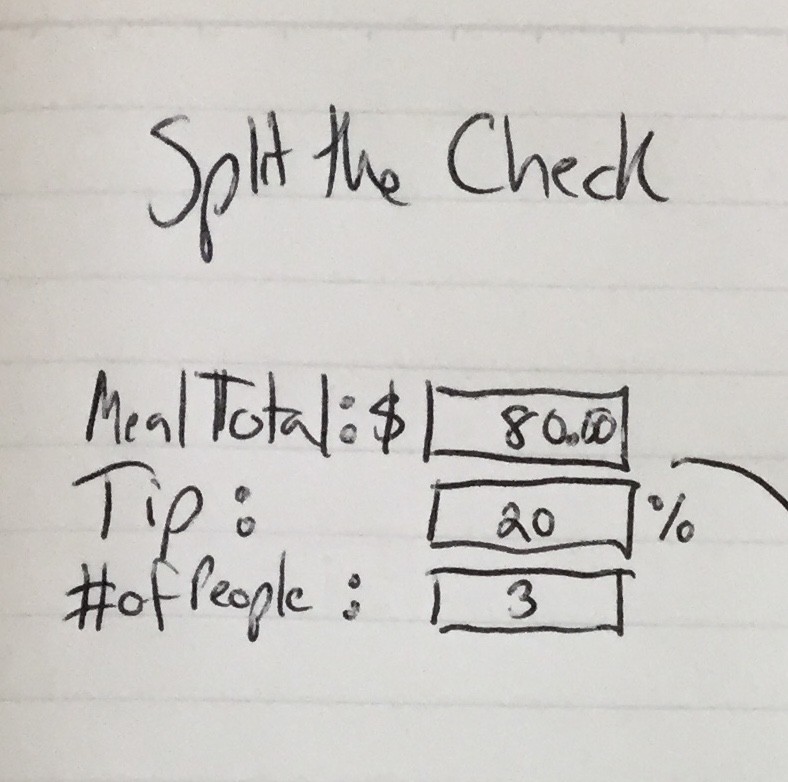 Split the Check
Meal Total: $ 80.00
Tip: 20 %
# of People: 3